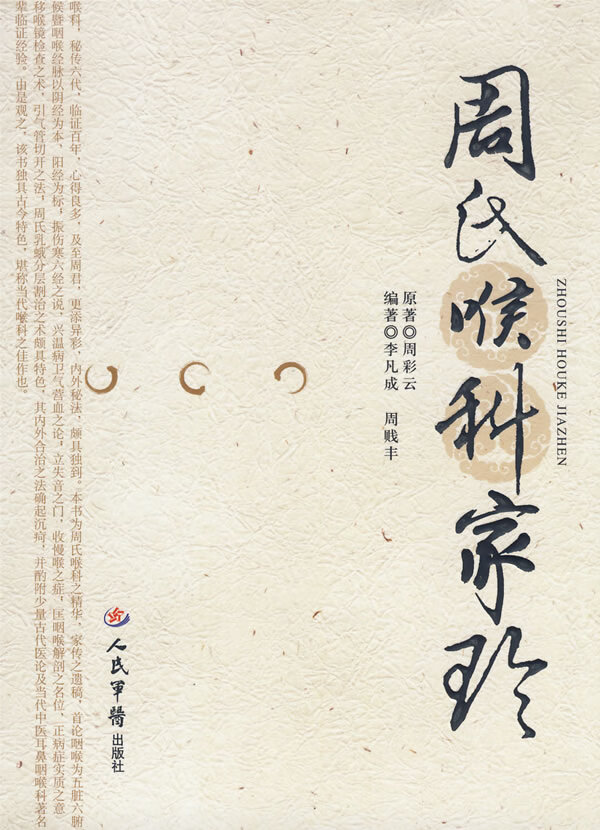 周氏喉科家珍
ZHOUSHI HOUKE JIAZHEN
原著◎周彩云
编著◎李凡成 周贱丰
喉科，秘传六代，临证百年，心得良多，及至周君，更添异彩，内外秘法，颇具独到。本书为周氏喉科之精华，家传之遗稿，首论咽喉为五脏六腑
候暨咽喉经脉以阴经为本，阳经为标，振伤寒六经之说，兴温病卫气营血之论，立失音之门，收慢喉之症，匡咽喉解剖之名位，正病症实质之意
移喉镜检查之术，引气管切开之法，周氏乳蛾分层割治之术颇具特色，其内外合治之法确起沉疴，并酌附少量古代医论及当代中医耳鼻咽喉科著名
辈临证经验。由是观之，该书独具古今特色，堪称当代喉科之佳作也。
人民军医出版社